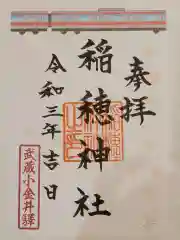 奉拝
稲穂神社
令和三年吉日
武蔵小金井驛